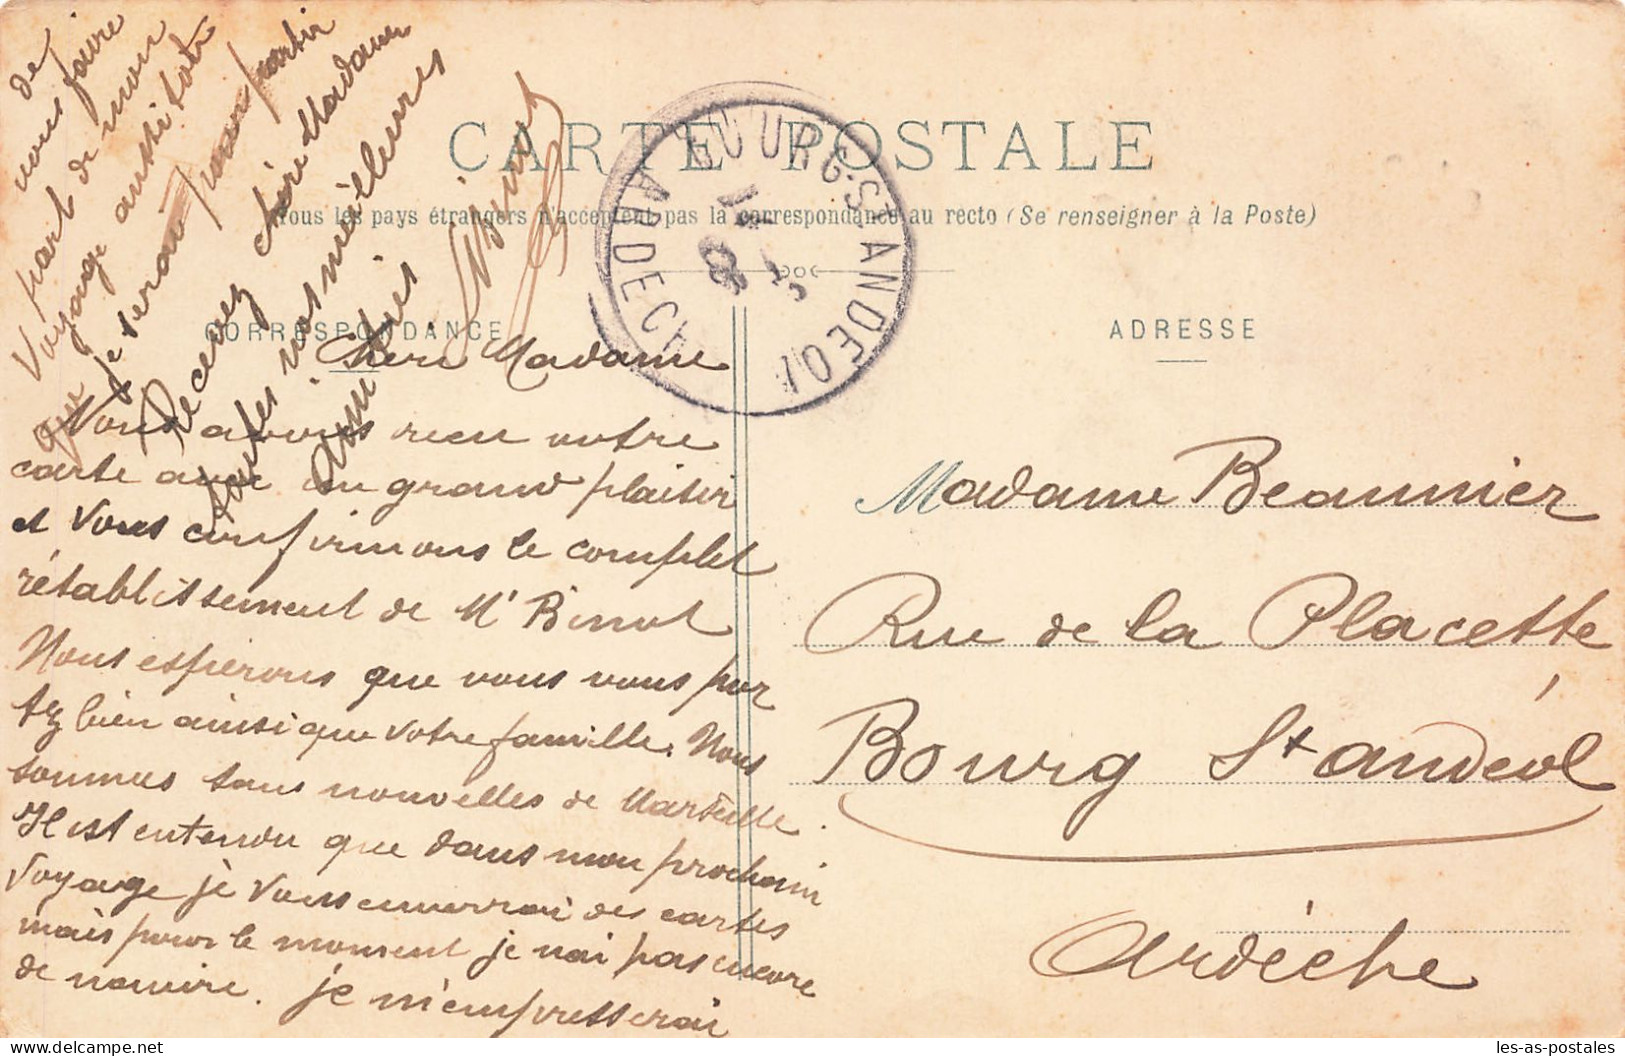 CARTE POSTALE
Tous les pays étrangers n'acceptent pas la correspondance au recto (Se renseigner à la Poste)
CORRESPONDANCE
ADRESSE
BOURG-ST-ANDEOL
ARDECHE
Chere Madame
Nous avons recu votre
carte avec un grand plaisir
et vous confirmons le complet
rétablissement de Mr Binot
Nous espierons que vous vous por
tez bien ainsi que votre famille. Nous
sommes sans nouvelles de Marseille.
Il est entendu que dans mon prochain
voyage je vous enverrai des cartes
mais pour le moment je nai pas encore
de navire. je m'empresserai
de
vous faire
part de mon
voyage aussitot
que je serai pour partir
Recevez chère Madame
toutes nos meilleures
amitiés
Binot
Madame Beaumier
Rue de la Placette
Bourg St andéol
Ardèche
les-as-postales